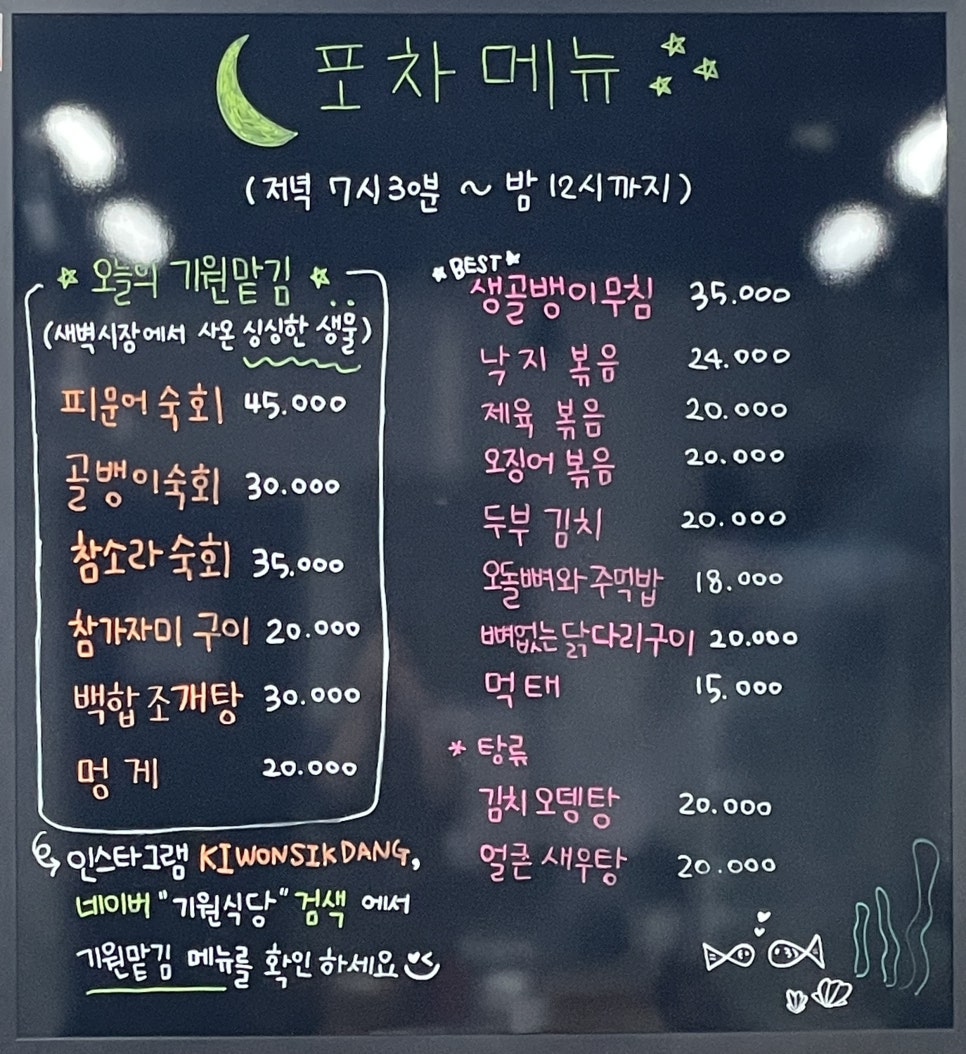 포차메뉴
(저녁 7시30분 ~ 밤 12시까지)
오늘의 기원맡김
(새벽시장에서 사온 싱싱한 생물)
피문어 숙회 45.000
골뱅이숙회 30.000
참소라숙회 35.000
참가자미 구이 20.000
백합 조개탕 30.000
멍게 20.000
인스타그램 KIWONSIKDANG,
네이버 "기원식당" 검색 에서
기원맡김 메뉴를 확인 하세요
*BEST*
생골뱅이무침 35.000
낙지 볶음 24.000
제육 볶음 20.000
오징어 볶음 20.000
두부 김치 20.000
오돌뼈와 주먹밥 18.000
뼈없는 닭다리구이 20.000
먹태 15.000
* 탕류
김치 오뎅탕 20.000
얼큰 새우탕 20.000